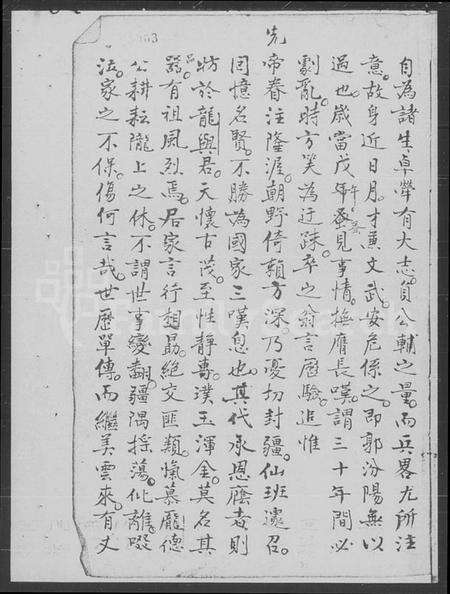 自為諸生卓犖有大志。負公輔之量。而兵畧尤所注
意。故身近日月。才兼文武。安危係之。即郭汾陽無以
過也。歲當戊午。蚤見事情。撫膺長嘆。謂三十年間必
劇亂。時方笑為迂踈。卒之翁言屢驗。追惟
先
帝眷注隆渥。朝野倚賴方深。乃憂切封疆。仙班遽召。
回憶名賢。不勝為國家三嘆息也。其代承恩廕者。則
昉於龍與君。天懷古茂。至性靜專。璞玉渾金。莫名其
器。有祖風烈焉。居家言行相勗。絕交匪類。慨慕龐德
公耕耘隴上之休。不謂世事變翻。疆隅搖蕩。仳離啜
泣。家之不保。傷何言哉。世歷單傳。而繼美雲來。有丈